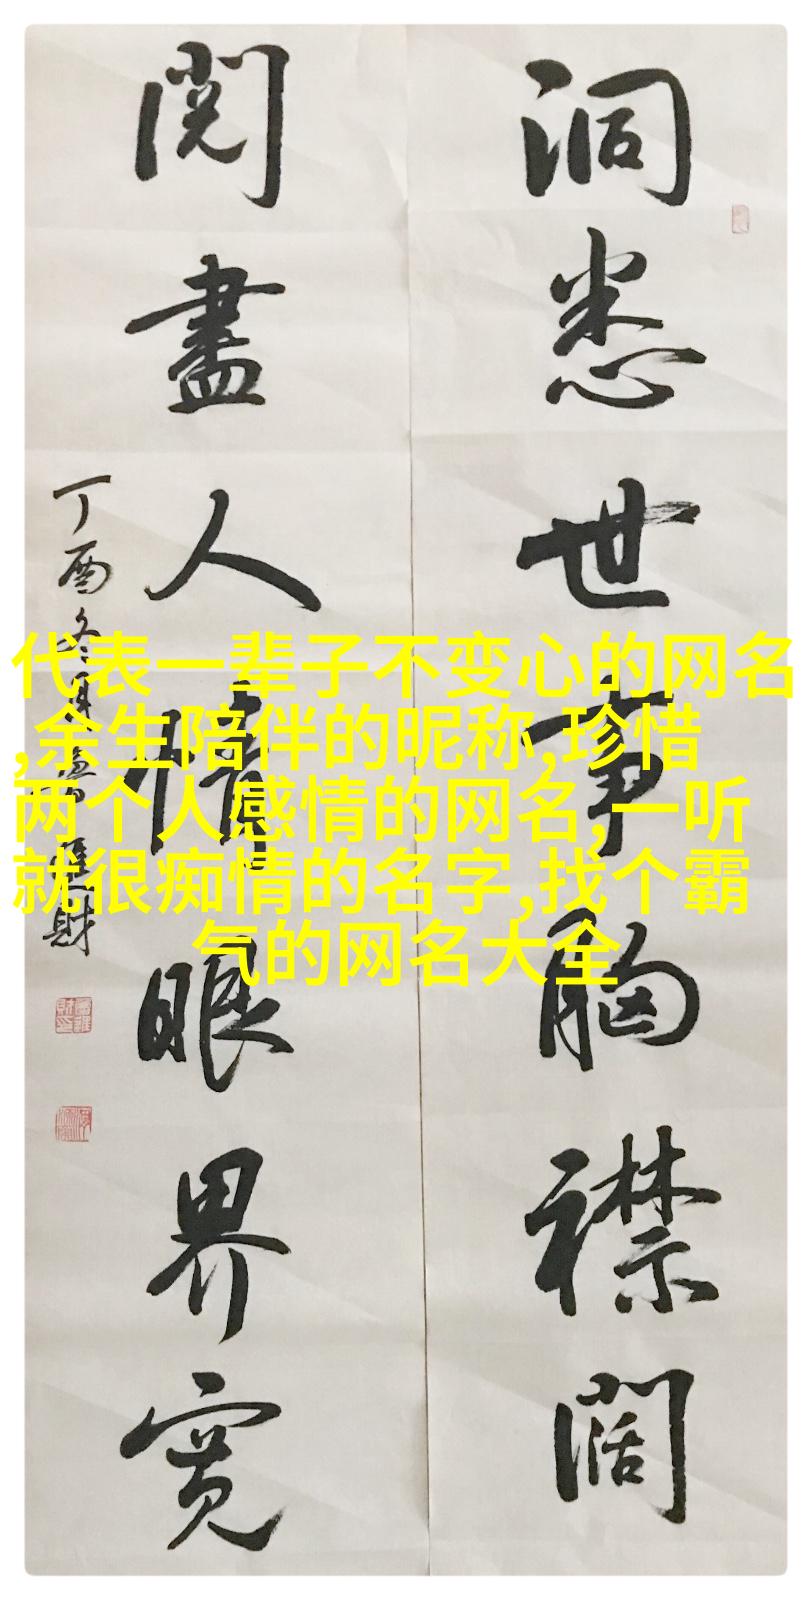 洞悉世事胸襟阔
阅盡人情眼界宽
丁酉冬月
財
代表一辈子不变心的网名
,余生陪伴的昵称,珍惜
两个人感情的网名,一听
就很痴情的名字,找个霸
气的网名大全